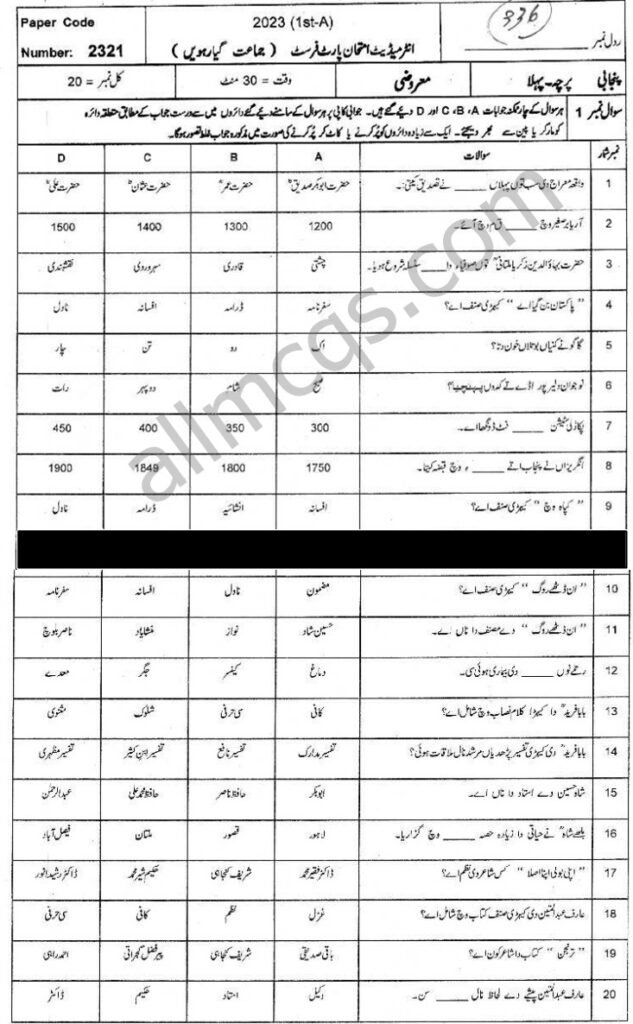 Paper Code
2023 (1st-A)
336
رول نمبر
Number: 2321
انٹرمیڈیٹ امتحان پارٹ فرسٹ (جماعت گیارہویں)
پنجابی پرچہ۔پہلا معروضی وقت = 30 منٹ کل نمبر = 20
سوال نمبر 1 ہر سوال کے چار ممکنہ جوابات C،B،A اور D دیئے گئے ہیں۔ جوابی کاپی پر ہر سوال کے سامنے دیئے گئے دائروں میں سے درست جواب کے مطابق متعلقہ دائرہ
کو مارکر یا پین سے بھر دیجئے۔ ایک سے زیادہ دائروں کو پُر کرنے یا کاٹ کر پُر کرنے کی صورت میں مذکورہ جواب غلط تصور ہوگا۔
نمبر شمار سوالات A B C D
1 واقعہ معراج دی سب توں پہلاں ____ نے تصدیق کیتی:۔ حضرت ابوبکر صدیقؓ حضرت عمرؓ حضرت عثمانؓ حضرت علیؓ
2 آریا برصغیر وچ ____ ق م وچ آئے۔ 1200 1300 1400 1500
3 حضرت بہاؤالدین زکریا ملتانیؒ توں صوفیاء دا ____ سلسلہ شروع ہویا۔ چشتی قادری سہروردی نقشبندی
4 "پاکستان بن گیا اے" کیہڑی صنف اے؟ سفرنامہ ڈرامہ افسانہ ناول
5 گاگو نے کنیاں بوتلاں خون دتا؟ اک دو تن چار
6 نوجوان دلیر پور اڈے تے کدوں پہنچیا؟ صبح شام دوپہر رات
7 پکاڈلی سٹیشن ____ فٹ ڈونگھا اے۔ 300 350 400 450
8 انگریزاں نے پنجاب اتے ____ ء وچ قبضہ کیتا۔ 1750 1800 1849 1900
9 "کپاہ وچ" کیہڑی صنف اے؟ افسانہ انشائیہ ڈرامہ ناول
10 "ان ڈٹھے روگ" کیہڑی صنف اے؟ مضمون ناول افسانہ سفرنامہ
11 "ان ڈٹھے روگ" دے مصنف دا ناں اے۔ حسین شاد نواز منشایاد ناصر بلوچ
12 رحمے نوں ____ دی بیماری ہوئی سی۔ دماغ کینسر جگر معدے
13 بابا فریدؒ دا کیہڑا کلام نصاب وچ شامل اے؟ کافی سی حرفی شلوک مثنوی
14 بابا فریدؒ دی کیہڑی تفسیر پڑھدیاں مرشد نال ملاقات ہوئی؟ تفسیر مدارک تفسیر نافع تفسیر ابن کثیر تفسیر مظہری
15 شاہ حسین دے استاد دا ناں اے۔ ابوبکر حافظ ناصر حافظ محمد علی عبدالرحمٰن
16 بلھے شاہؒ نے حیاتی دا زیادہ حصہ ____ وچ گزاریا۔ لاہور قصور ملتان فیصل آباد
17 "اپنی بولی اپنا اصلا" کس شاعر دی نظم اے؟ ڈاکٹر فقیر محمد شریف کنجاہی حکیم شیر محمد ڈاکٹر رشید انور
18 عارف عبدالمتین دی کیہڑی صنف کتاب وچ شامل اے؟ غزل نظم کافی سی حرفی
19 "ترنجن" کتاب دا شاعر کون اے؟ باقی صدیقی شریف کنجاہی پیر فضل گجراتی احمد راہی
20 عارف عبدالمتین پیشے دے لحاظ نال ____ سن۔ وکیل استاد حکیم ڈاکٹر
allmcqs.com